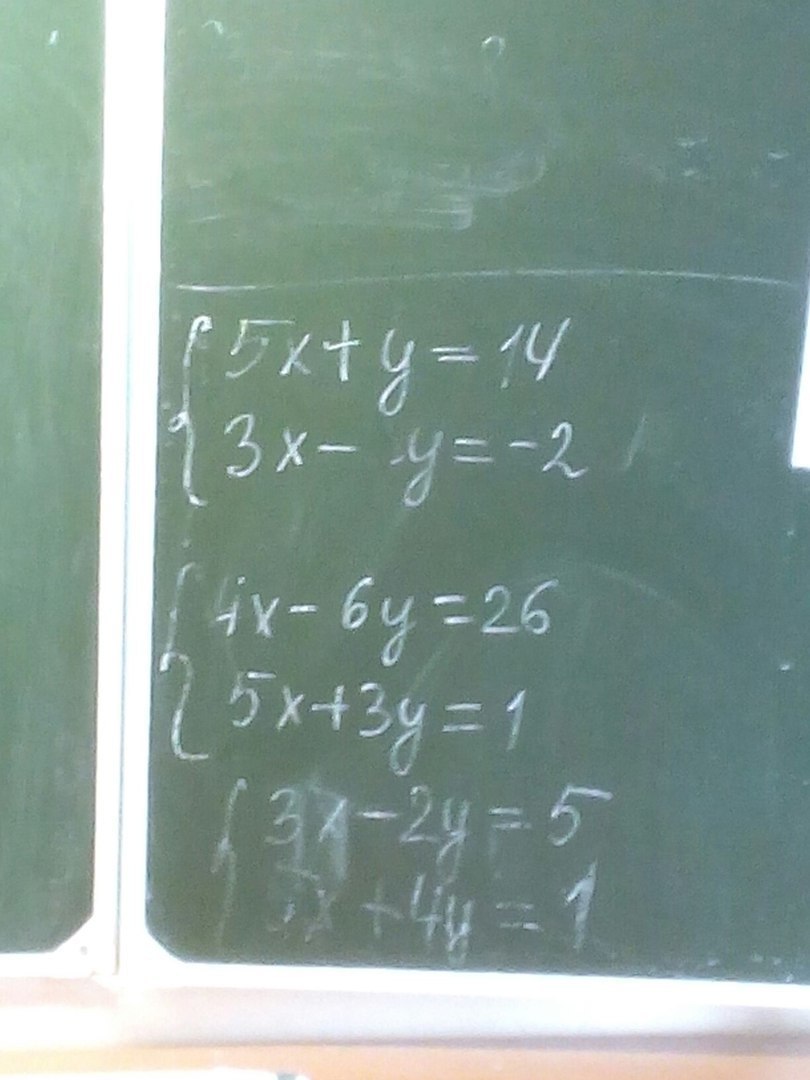 5x+y=14
3x- y=-2
4x-6y=26
5x+3y=1
3x-2y=5
5x+4y=1